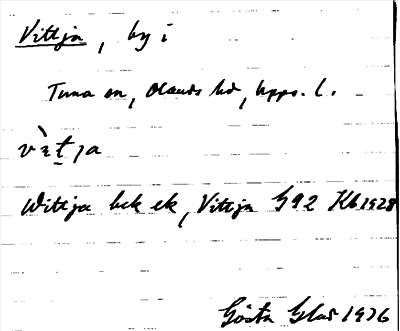 Vittja, by i
Tuna sn, Olands hd, Upps. l.
Wittja bek ek, Vittja G92 Kb 1928
Gösta 1976